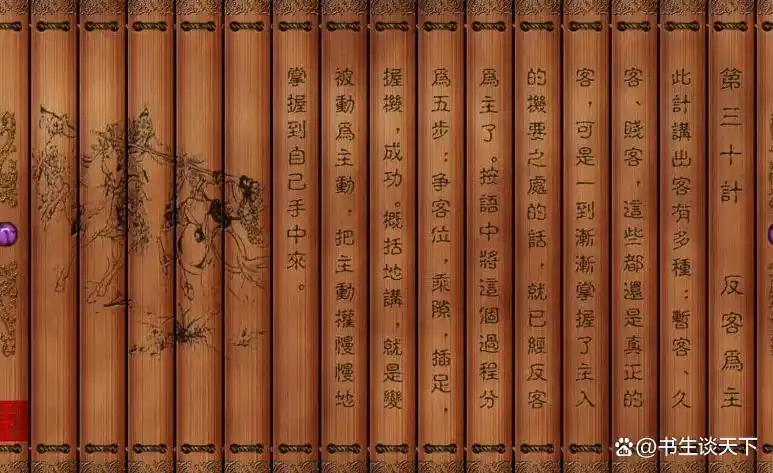 第三十計　反客爲主
此計講出客有多種：暫客、久
客、賤客，這些都還是真正的
客，可是一到漸漸掌握了主人
的機要之處的話，就已經反客
爲主了。按語中將這個過程分
爲五步：争客位，乘隙，插足，
握機，成功。概括地講，就是變
被動爲主動，把主動權慢慢地
掌握到自己手中來。
@书生谈天下